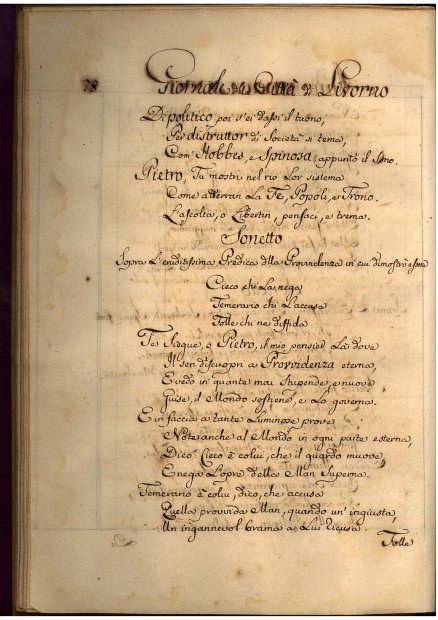 78 Giornale della Città di Livorno
Di politico poi s'ei dassi il tuono,
Per distruttor di Società si tema,
Com' Hobbes, e Spinosa, appunto il sono.
Pietro, Tu mostri nel rio Lor sistema
Come atterran La Fe, Popoli, e Trono.
L'ascolta, o Libertin, pensaci, e trema.
Sonetto
Sopra L'eruditissima Predica della Providenza in cui dimostrò essere
Cieco chi La nega
Temerario chi L'accusa
Folle chi ne diffida
Te Siegue, o Pietro, il mio pensier La dove
Il sen discuopri a Providenza eterna,
E vedo in quante mai stupende, e nuove
Guise, il Mondo sostiene, e Lo governa.
E in faccia a tante Luminose prove
Note anche al Mondo in ogni parte esterna,
Dico: Cieco è colui, che il guardo muove,
E nega L'opra della Man Superna.
Temerario è colui, dico, che accusa
Quella provvida Man, quando un' ingiusta,
Un ingannevol brama a Lui ricusa.
Folle